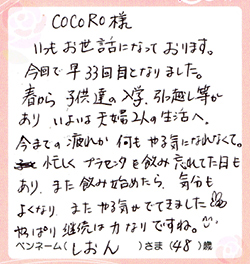 COCORO様
いつもお世話になっております。
今回で早33回目となりました。
春から子供達の入学、引っ越し等が
あり いよいよ夫婦2人の生活へ。
今までの疲れか何もやる気になれなくて。
忙しくプラセンタを飲み忘れてた日も
あり、また飲み始めたら、気分も
よくなり、またやる気がでてきました
やっぱり継続は力なりですね。
ペンネーム(しおん)さま(48)歳